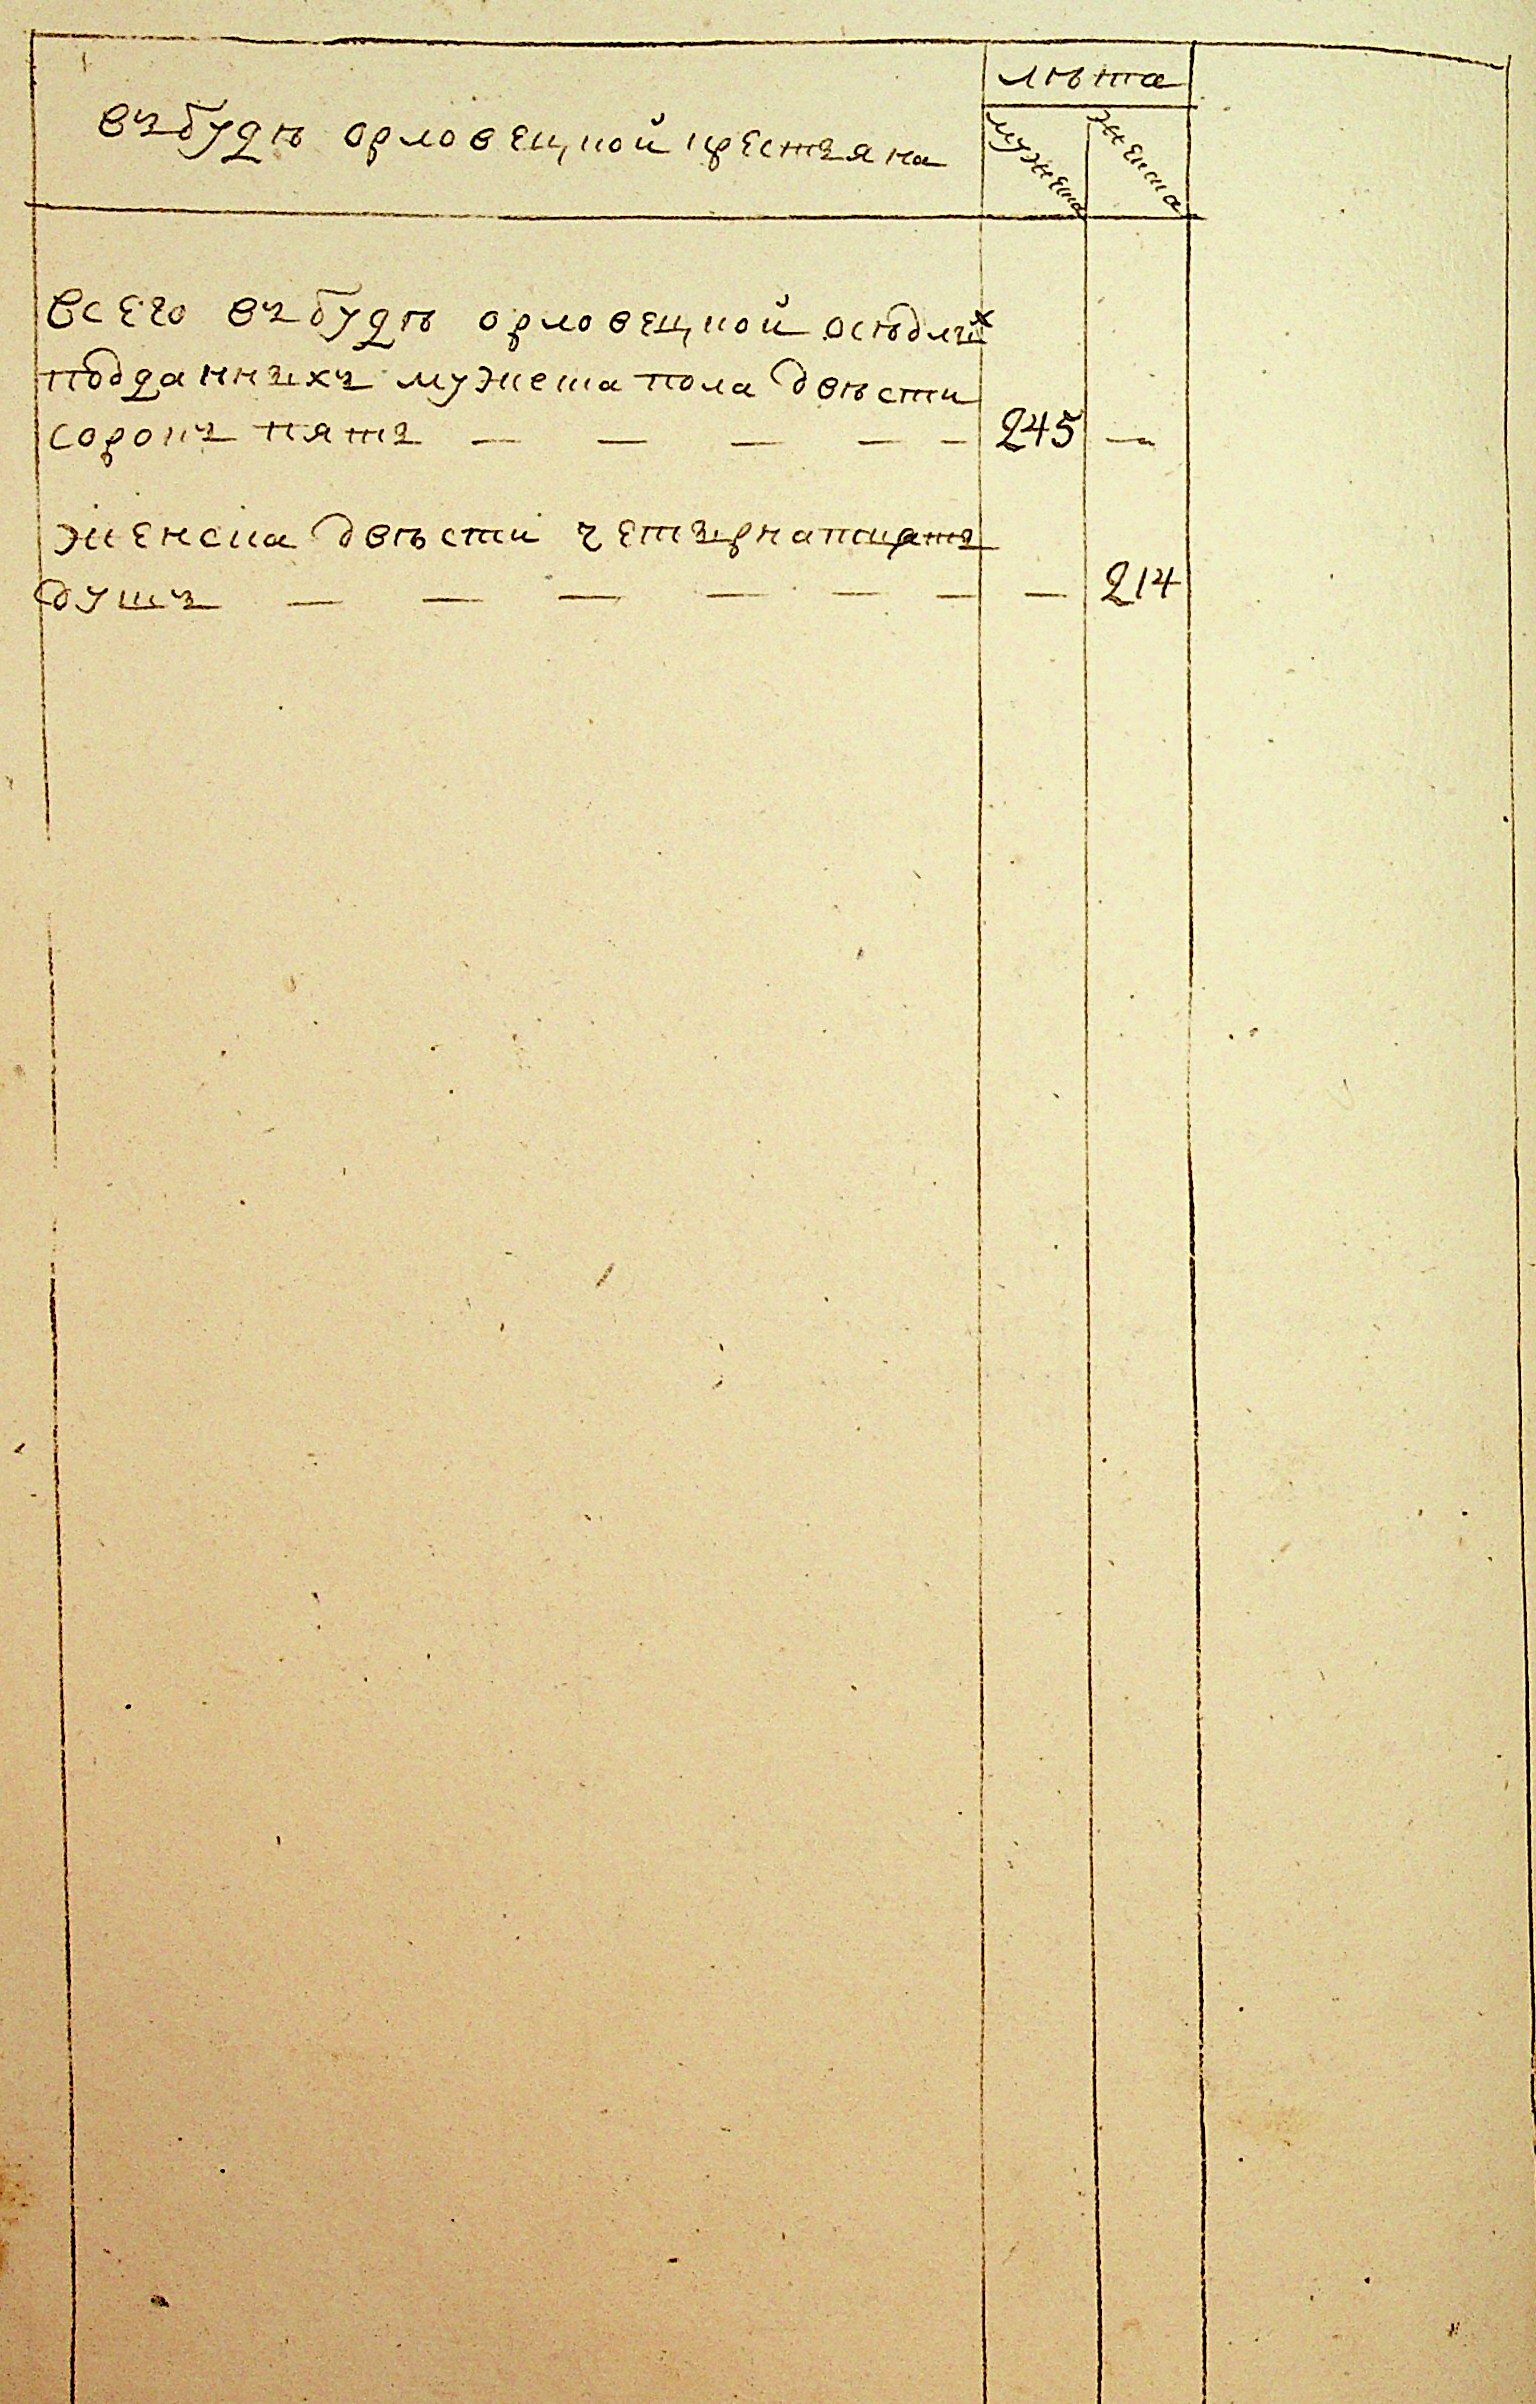 лѣта
въ будѣ орловецкой крестьяна
мужеска
женска
Всего въ будѣ орловецкой осѣдлых
подданныхъ мужеска пола двѣсти
сорокъ пять — — — — — 245 —
женска двѣсти четырнатцать
душъ — — — — — — — 214